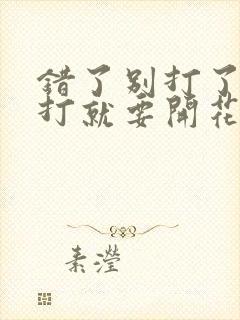 错了别打了
打就要開花
素瀅